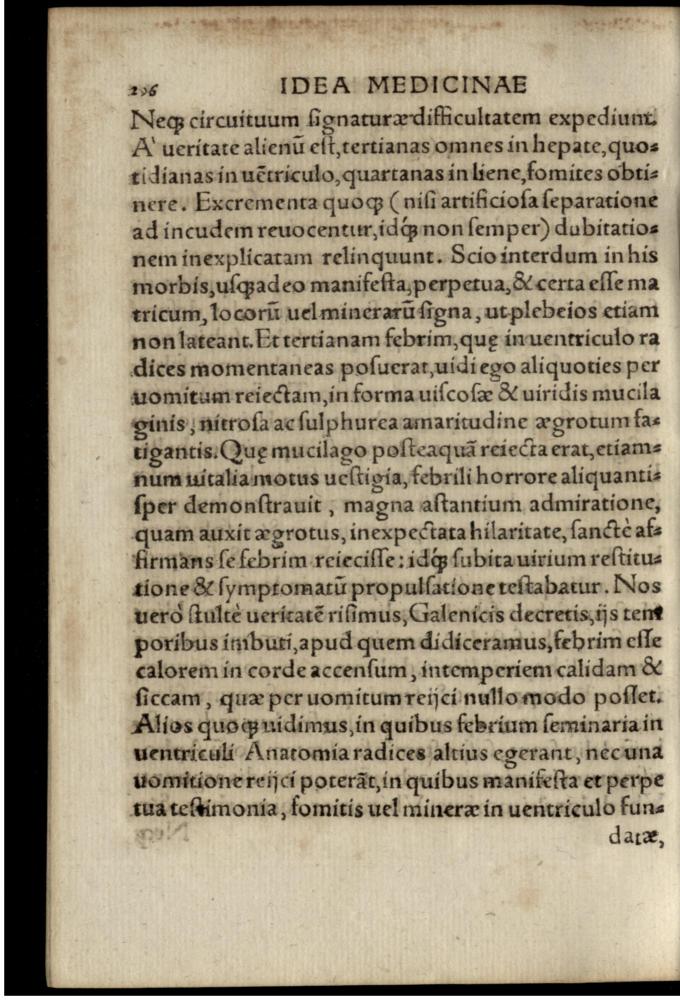 296 IDEA MEDICINAE
Neqꝫ circuituum ſignaturæ difficultatem expediunt.
A' ueritate alienũ eſt, tertianas omnes in hepate, quo⸗
tidianas in uẽtriculo, quartanas in liene, fomites obti⸗
nere. Excrementa quoqꝫ ( niſi artificioſa ſeparatione
ad incudem reuocentur, idq́ꝫ non ſemper) dubitatio⸗
nem inexplicatam relinquunt. Scio interdum in his
morbis, uſqꝫ adeo manifeſta, perpetua, & certa eſſe ma
tricum, locorũ uel minerarũ ſigna, ut plebeios etiam
non lateant. Et tertianam febrim, quę in uentriculo ra
dices momentaneas poſuerat, uidi ego aliquoties per
uomitum reiectam, in forma uiſcoſæ & uiridis mucila
ginis, nitroſa ac ſulphurea amaritudine ægrotum fa⸗
tigantis. Quę mucilago poſteaquã reiecta erat, etiam⸗
num uitalia motus ueſtigia, febrili horrore aliquanti⸗
ſper demonſtrauit, magna aſtantium admiratione,
quam auxit ægrotus, inexpectata hilaritate, ſanctè af⸗
firmans ſe febrim reieciſſe: idq́ꝫ ſubita uirium reſtitu⸗
tione & ſymptomatũ propulſatione teſtabatur. Nos
uerò ſtultè ueritatẽ riſimus, Galenicis decretis, ijs tem
poribus imbuti, apud quem didiceramus, febrim eſſe
calorem in corde accenſum, intemperiem calidam &
ſiccam, quæ per uomitum reijci nullo modo poſſet.
Alios quoqꝫ uidimus, in quibus febrium ſeminaria in
uentriculi Anatomia radices altius egerant, nec una
uomitione reijci poterãt, in quibus manifeſta et perpe
tua teſtimonia, fomitis uel mineræ in uentriculo fun⸗
datæ,